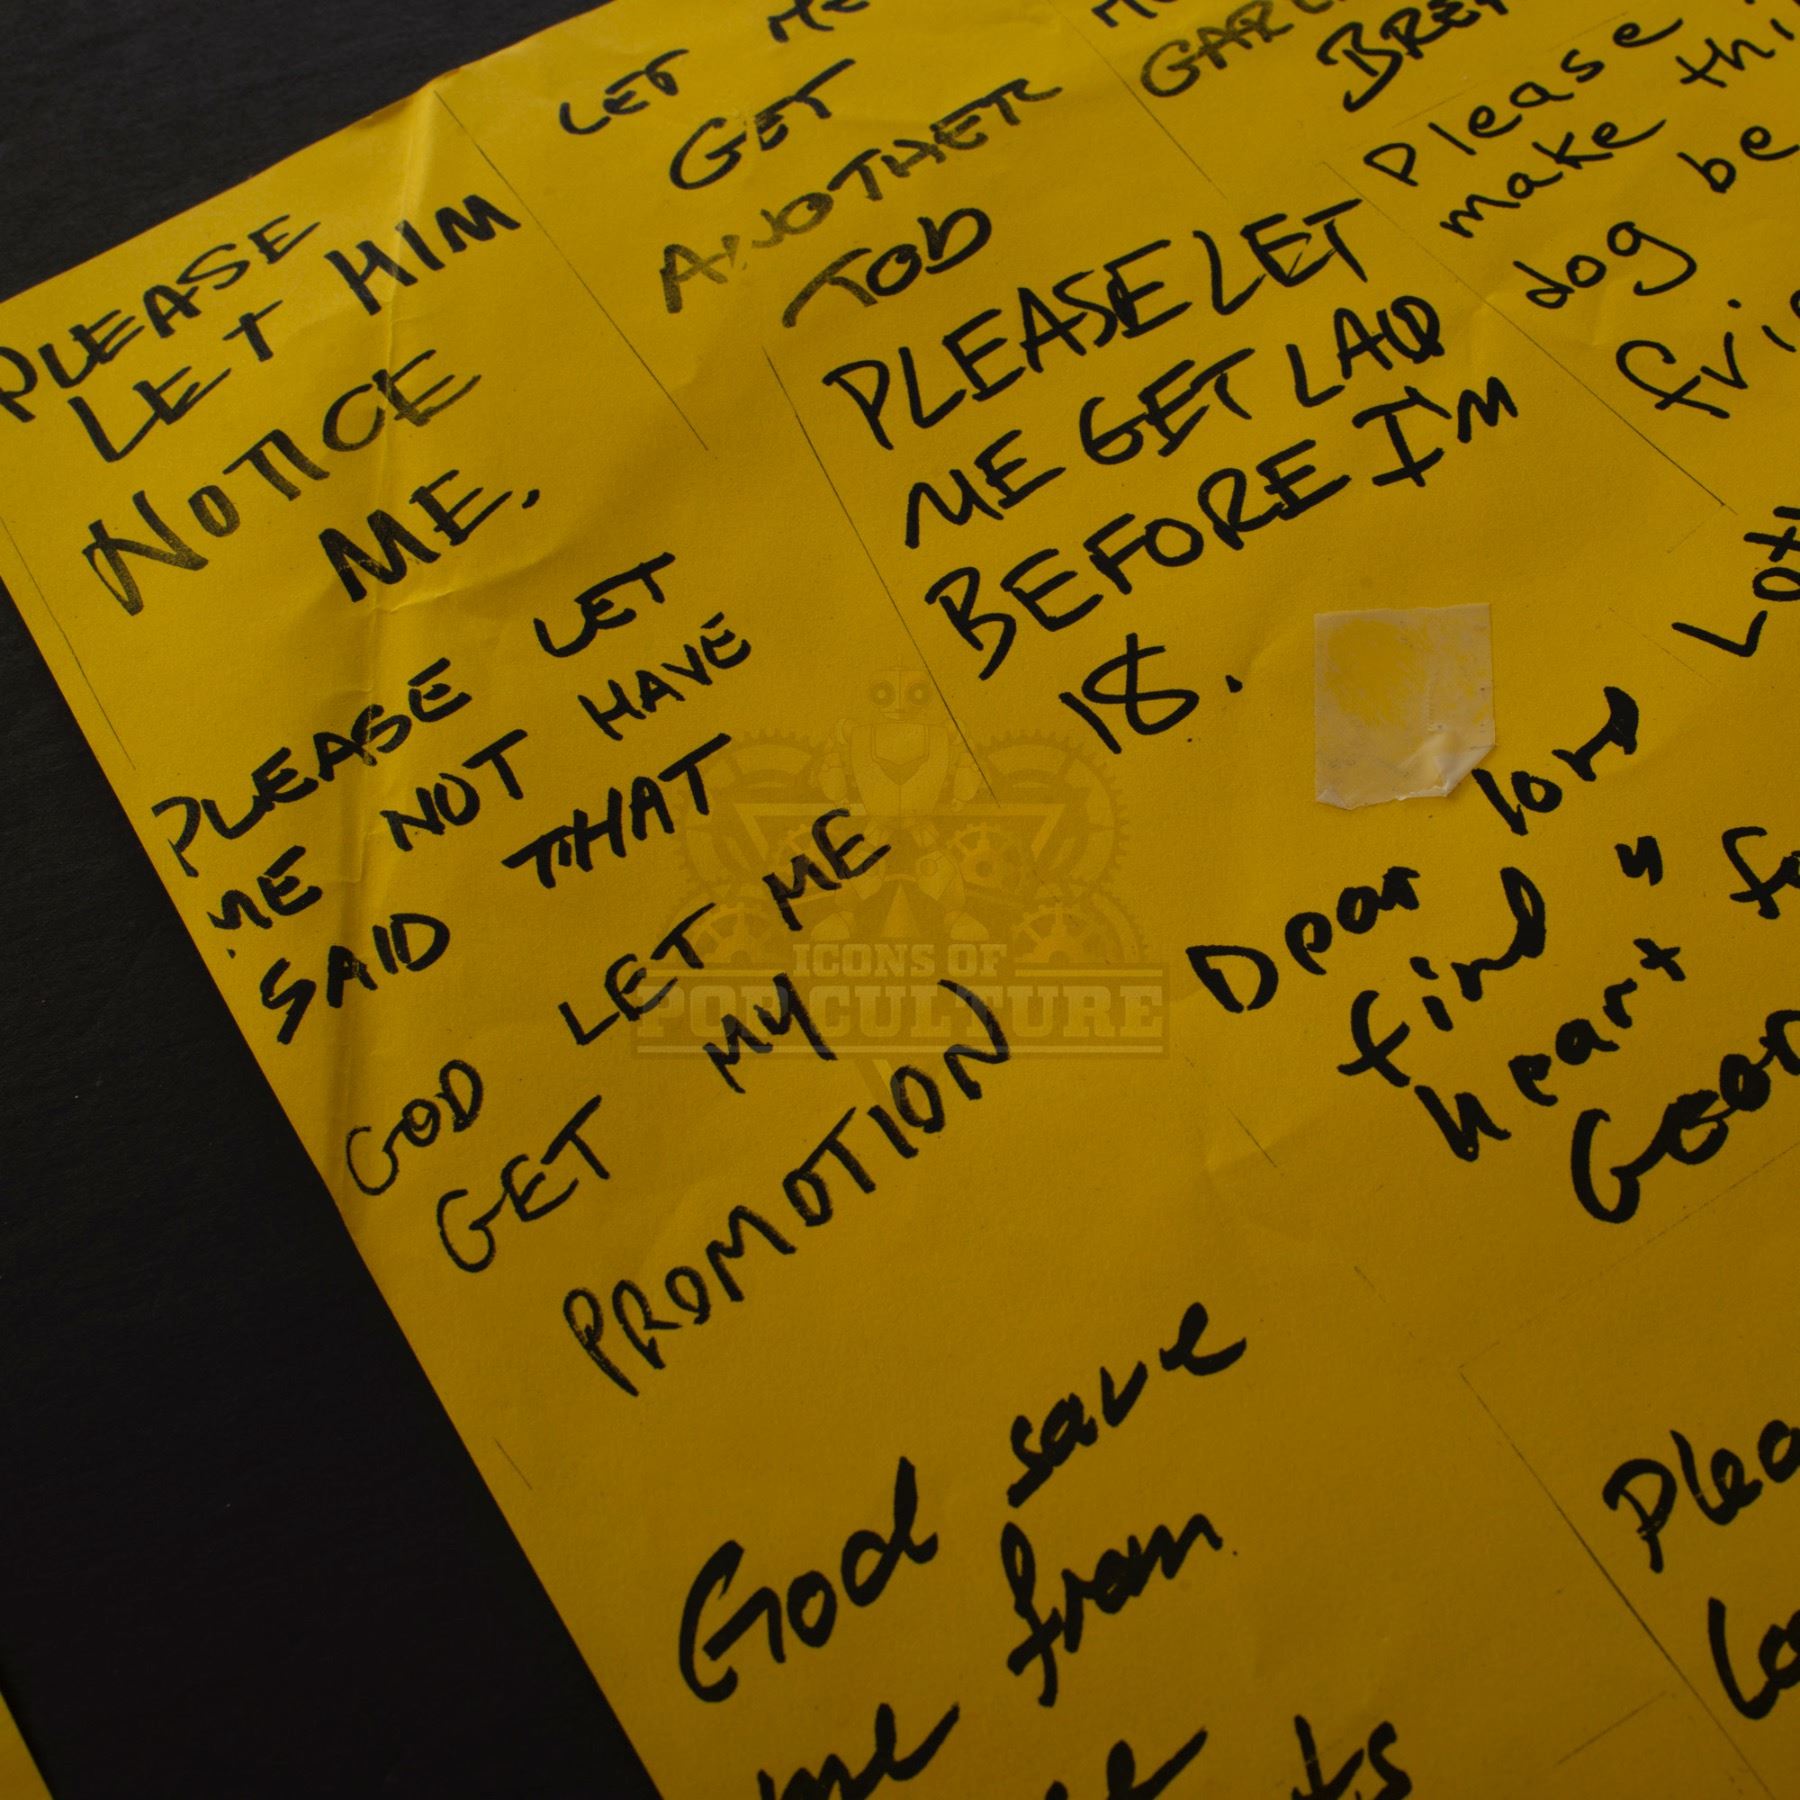 PLEASE
LET HIM
NOTICE
ME.
LET ME
GET
ANOTHER
JOB
Please
make thi
dog be
fri
PLEASE LET
ME GET LAID
BEFORE I'M
18.
PLEASE LET
ME NOT HAVE
SAID THAT
GOD LET ME
GET MY
PROMOTION
Dear lord
find
heart
God save
me from
Plea
ICONS OF
POP CULTURE